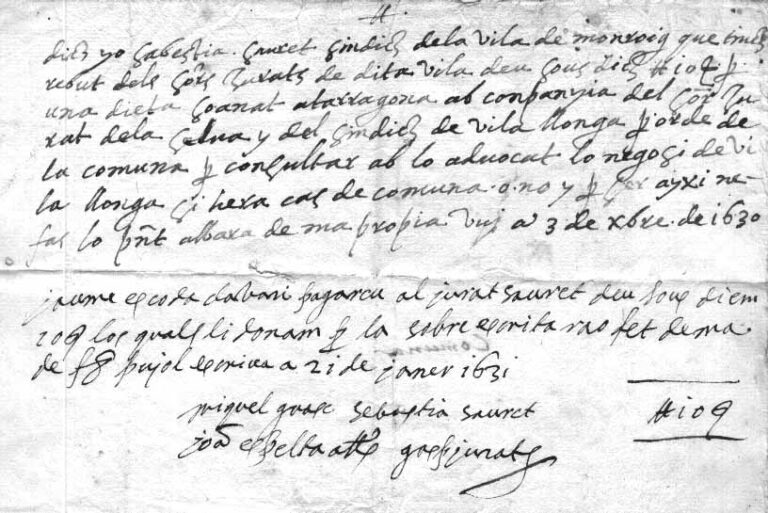 dich yo Sabestia Sauret sindich dela vila de monroig que tinch
rebut dels sors Jurats de dita vila deu sous dich #10ƍ p
una dieta so anat a tarragona ab conpanyia del sor Ju
rat dela selva y del sindich de vila llonga p orde de
la comuna p consultar ab lo advocat lo negosi de vi
la llonga si hera cas de comuna o no y p ser axi ne
fas lo pnt albara de ma propia vuj a 3 de xbre de 1630
jaume escoda clavari pagareu al jurat sauret deu sous diem
10ƍ los quals li donam p la sobre escrita rao fet de ma
de pujol escriva a 21 de janer 1631
miquel sebastia sauret #10ƍ
joā espelta jurats
comuna